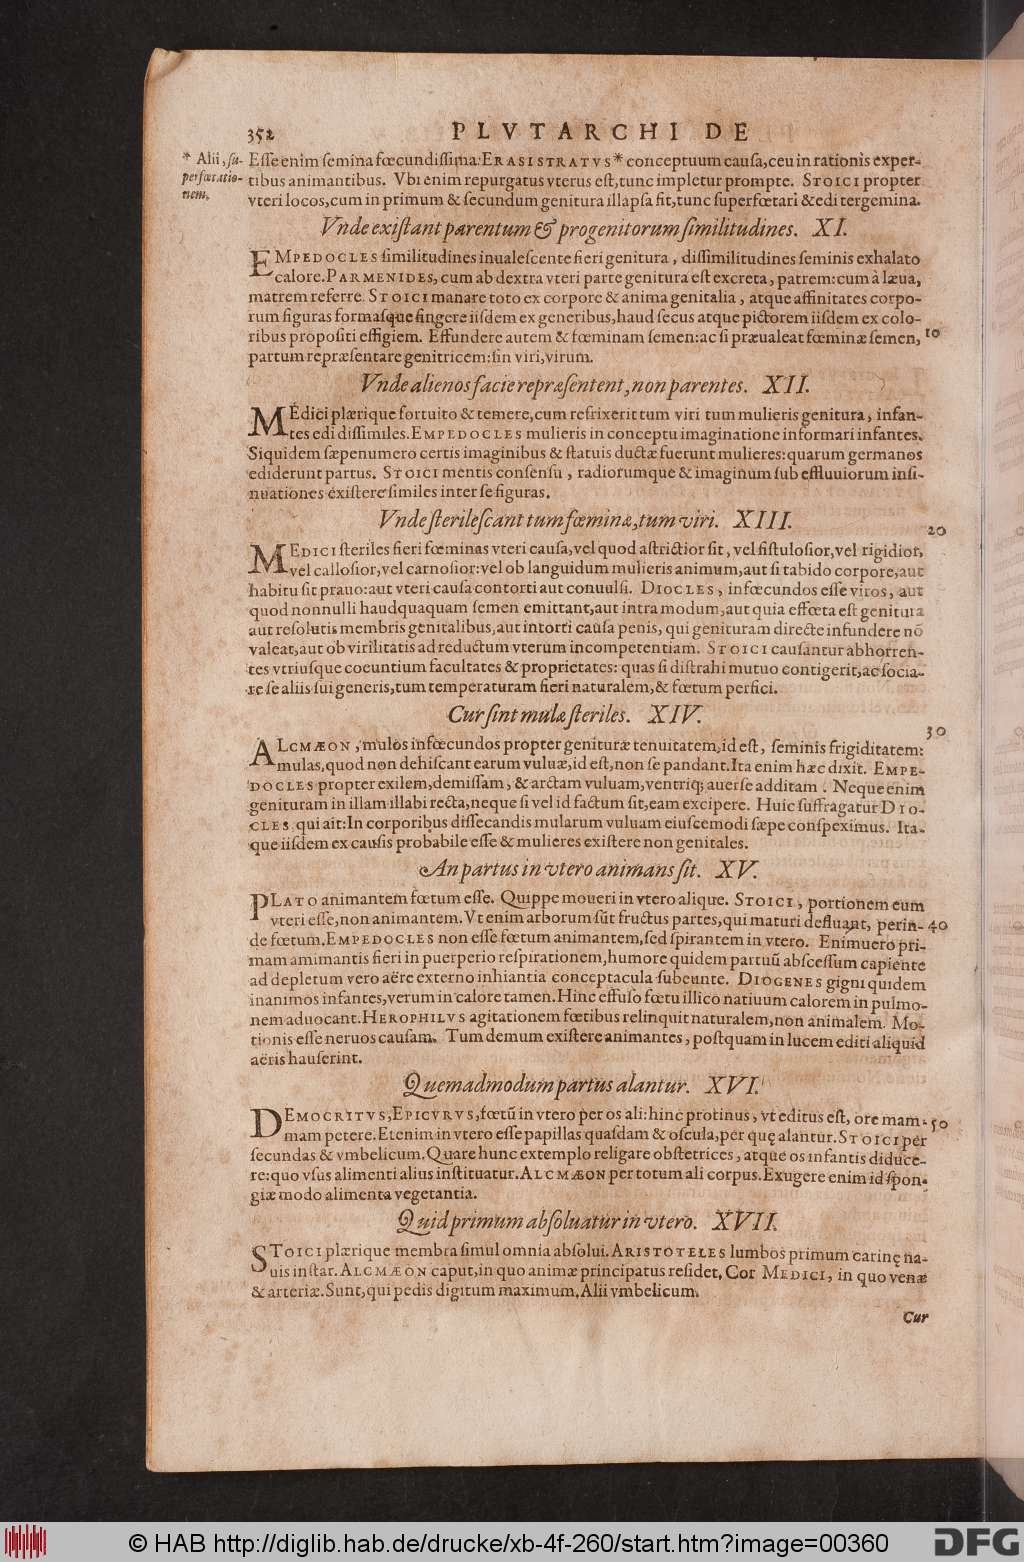 352 PLVTARCHI DE
* Alii, su-
perfœtatio-
nem.
Esse enim semina fœcundissima. ERASISTRATVS* conceptuum causa, ceu in rationis exper-
tibus animantibus. Vbi enim repurgatus vterus est, tunc impletur prompte. STOICI propter
vteri locos, cum in primum & secundum genitura illapsa sit, tunc superfœtari & edi tergemina.
Vnde existant parentum & progenitorum similitudines. XI.
EMPEDOCLES similitudines inualescente fieri genitura, dissimilitudines seminis exhalato
calore. PARMENIDES, cum ab dextra vteri parte genitura est excreta, patrem: cum à læua,
matrem referre. STOICI manare toto ex corpore & anima genitalia, atque affinitates corpo-
rum figuras formasque fingere iisdem ex generibus, haud secus atque pictorem iisdem ex colo-
ribus propositi effigiem. Effundere autem & fœminam semen: ac si præualeat fœminæ semen, 10
partum repræsentare genitricem: sin viri, virum.
Vnde alienos facie repræsentent, non parentes. XII.
MÉdici plærique fortuito & temere, cum refrixerit tum viri tum mulieris genitura, infan-
tes edi dissimiles. EMPEDOCLES mulieris in conceptu imaginatione informari infantes.
Siquidem sæpenumero certis imaginibus & statuis ductæ fuerunt mulieres: quarum germanos
ediderunt partus. STOICI mentis consensu, radiorumque & imaginum sub effluuiorum insi-
nuationes existere similes inter se figuras.
Vnde sterilescant tum fœminæ, tum viri. XIII.
20
MEDICI steriles fieri fœminas vteri causa, vel quod astrictior sit, vel fistulosior, vel rigidior,
vel callosior, vel carnosior: vel ob languidum mulieris animum, aut si tabido corpore, aut
habitu sit prauo: aut vteri causa contorti aut conuulsi. DIOCLES, infœcundos esse viros, aut
quod nonnulli haudquaquam semen emittant, aut intra modum, aut quia effœta est genitura
aut resolutis membris genitalibus, aut intorti causa penis, qui genituram directe infundere nō
valeat, aut ob virilitatis ad reductum vterum incompetentiam. STOICI causantur abhorren-
tes vtriusque coeuntium facultates & proprietates: quas si distrahi mutuo contigerit, ac socia-
re se aliis sui generis, tum temperaturam fieri naturalem, & fœtum perfici.
Cur sint mulæ steriles. XIV.
30
ALCMÆON, mulos infœcundos propter genituræ tenuitatem, id est, seminis frigiditatem:
mulas, quod non dehiscant earum vuluæ, id est, non se pandant. Ita enim hæc dixit. EMPE-
DOCLES propter exilem, demissam, & arctam vuluam, ventriq; auerse additam. Neque enim
genituram in illam illabi recta, neque si vel id factum sit, eam excipere. Huic suffragatur DIO-
CLES, qui ait: In corporibus dissecandis mularum vuluam eiuscemodi sæpe conspeximus. Ita-
que iisdem ex causis probabile esse & mulieres existere non genitales.
An partus in vtero animans sit. XV.
PLATO animantem fœtum esse. Quippe moueri in vtero alique. STOICI, portionem eum
vteri esse, non animantem. Vt enim arborum sūt fructus partes, qui maturi defluant, perin- 40
de fœtum. EMPEDOCLES non esse fœtum animantem, sed spirantem in vtero. Enimuero pri-
mam animantis fieri in puerperio respirationem, humore quidem partuū abscessum capiente
ad depletum vero aëre externo inhiantia conceptacula subeunte. DIOGENES gigni quidem
inanimos infantes, verum in calore tamen. Hinc effuso fœtu illico natiuum calorem in pulmo-
nem aduocant. HEROPHILVS agitationem fœtibus relinquit naturalem, non animalem. Mo-
tionis esse neruos causam. Tum demum existere animantes, postquam in lucem editi aliquid
aëris hauserint.
Quemadmodum partus alantur. XVI.
DEMOCRITVS, EPICVRVS, fœtū in vtero per os ali: hinc protinus, vt editus est, ore mam- 50
mam petere. Etenim in vtero esse papillas quasdam & oscula, per quę alantur. STOICI per
secundas & vmbelicum. Quare hunc extemplo religare obstetrices, atque os infantis diduce-
re: quo vsus alimenti alius instituatur. ALCMÆON per totum ali corpus. Exugere enim id spon-
giæ modo alimenta vegetantia.
Quid primum absoluatur in vtero. XVII.
STOICI plærique membra simul omnia absolui. ARISTOTELES lumbos primum carinę na-
uis instar. ALCMÆON caput, in quo animæ principatus residet. Cor MEDICI, in quo venæ
& arteriæ. Sunt, qui pedis digitum maximum. Alii vmbelicum.
Cur
© HAB http://diglib.hab.de/drucke/xb-4f-260/start.htm?image=00360
DFG